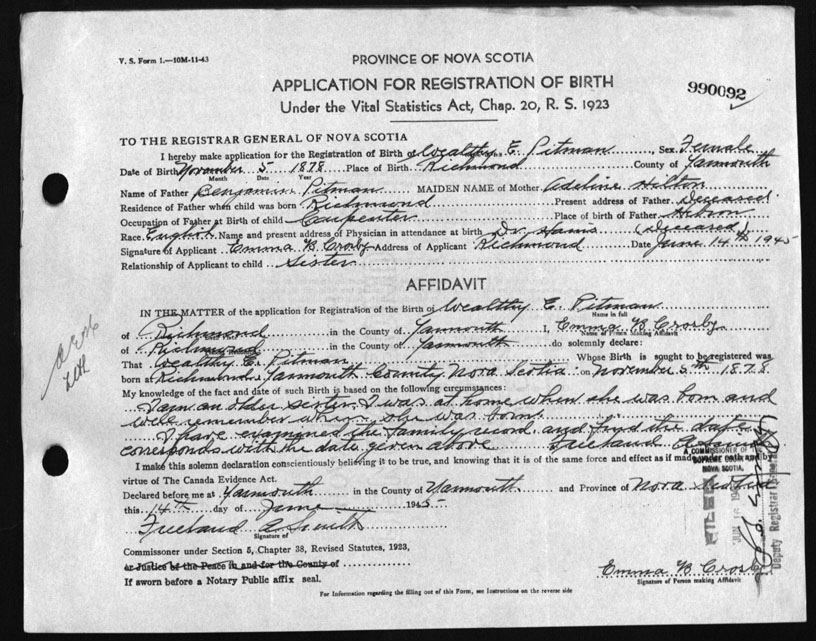 V. S. Form 1.—10M-11-43
PROVINCE OF NOVA SCOTIA
APPLICATION FOR REGISTRATION OF BIRTH
990092
Under the Vital Statistics Act, Chap. 20, R. S. 1923
TO THE REGISTRAR GENERAL OF NOVA SCOTIA
I hereby make application for the Registration of Birth of Wealthy E. Pitman, Sex Female
Date of Birth November 5 1878 Place of Birth Richmond County of Yarmouth
Month Date Year
Name of Father Benjamin Pitman MAIDEN NAME of Mother Adeline Hilton
Residence of Father when child was born Richmond Present address of Father Deceased
Occupation of Father at Birth of child Carpenter Place of birth of Father Hebron
Race English Name and present address of Physician in attendance at birth Dr. Harris (Deceased)
Signature of Applicant Emma B Crosby Address of Applicant Richmond Date June 14th 1945
Relationship of Applicant to child Sister
AFFIDAVIT
IN THE MATTER of the application for Registration of the Birth of Wealthy E. Pitman
Name in full
of Richmond in the County of Yarmouth I, Emma B Crosby
Name of Person Making Affidavit
of Richmond in the County of Yarmouth do solemnly declare:
That Wealthy E. Pitman Whose Birth is sought to be registered was
born at Richmond, Yarmouth County Nova Scotia on November 5th 1878
My knowledge of the fact and date of such Birth is based on the following circumstances:
I am an older sister, I was at home when she was born and
well remember when she was born.
I have examined the family record and find the date
corresponds with the date given above Freeland A Smith
A COMMISSIONER OF THE
SUPREME COURT OF
NOVA SCOTIA.
I make this solemn declaration conscientiously believing it to be true, and knowing that it is of the same force and effect as if made under oath and by
virtue of The Canada Evidence Act.
Declared before me at Yarmouth in the County of Yarmouth and Province of Nova Scotia
this 14th day of June 1945
Freeland A Smith
Signature of
Commissioner under Section 5, Chapter 38, Revised Statutes, 1923,
or Justice of the Peace in and for the County of
If sworn before a Notary Public affix seal.
Emma B Crosby
Signature of Person making Affidavit
For Information regarding the filling out of this Form, see Instructions on the reverse side
FILED
Deputy Registrar General